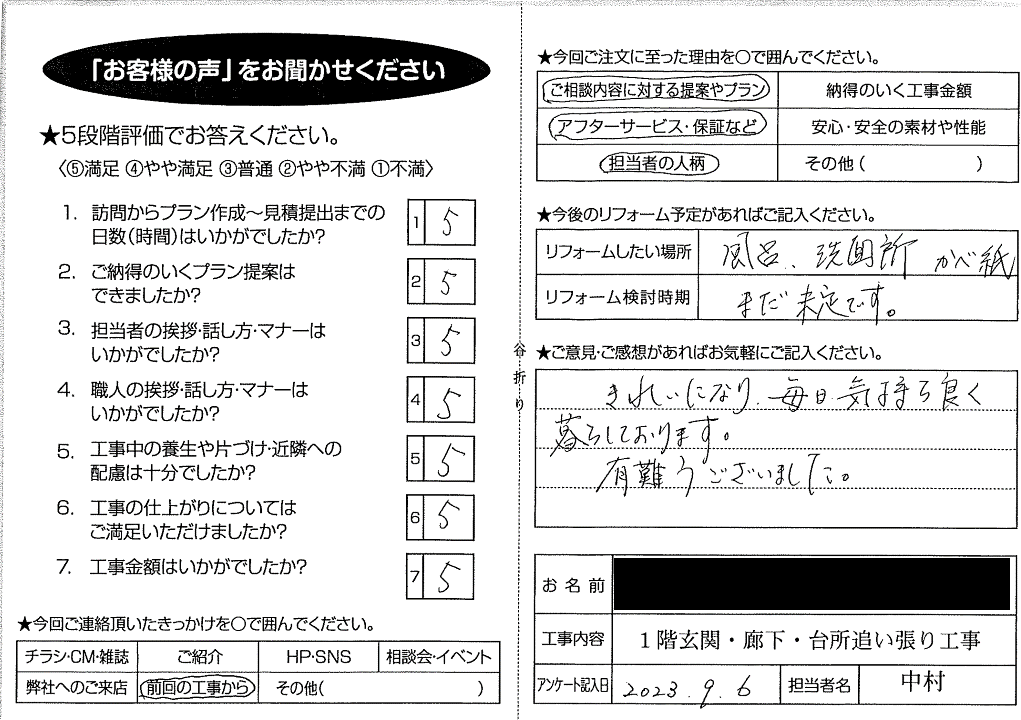 「お客様の声」をお聞かせください
★5段階評価でお答えください。
〈⑤満足 ④やや満足 ③普通 ②やや不満 ①不満〉
1. 訪問からプラン作成～見積提出までの
日数(時間)はいかがでしたか?
1 5
2. ご納得のいくプラン提案は
できましたか?
2 5
3. 担当者の挨拶・話し方・マナーは
いかがでしたか?
3 5
4. 職人の挨拶・話し方・マナーは
いかがでしたか?
4 5
5. 工事中の養生や片づけ・近隣への
配慮は十分でしたか?
5 5
6. 工事の仕上がりについては
ご満足いただけましたか?
6 5
7. 工事金額はいかがでしたか?
7 5
★今回ご連絡頂いたきっかけを〇で囲んでください。
チラシ・CM・雑誌 ご紹介 HP・SNS 相談会・イベント
弊社へのご来店 前回の工事から その他( )
谷折り
★今回ご注文に至った理由を〇で囲んでください。
ご相談内容に対する提案やプラン 納得のいく工事金額
アフターサービス・保証など 安心・安全の素材や性能
担当者の人柄 その他( )
★今後のリフォーム予定があればご記入ください。
リフォームしたい場所 風呂、洗面所 かべ紙
リフォーム検討時期 まだ未定です。
★ご意見・ご感想があればお気軽にご記入ください。
きれいになり、毎日気持ち良く
暮らしております。
有難うございました。
お名前
工事内容 1階玄関・廊下・台所追い張り工事
アンケート記入日 2023.9.6 担当者名 中村